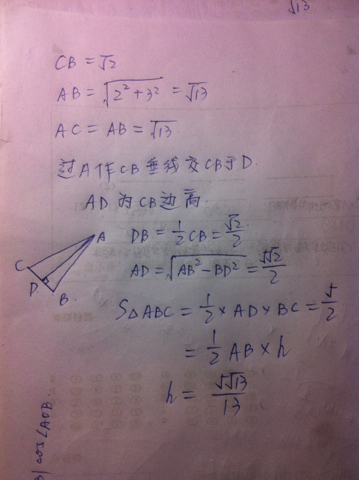 √13
CB = √2
AB = √(2²+3²) = √13
AC = AB = √13
过A作CB垂线交CB于D.
AD为CB边高.
A
C
D
B
DB = 1/2 CB = √2/2
AD = √(AB²-BD²) = 5√2/2
S△ABC = 1/2 × AD × BC = 5/2
= 1/2 AB × h
h = 5√13/13
cos∠AOB